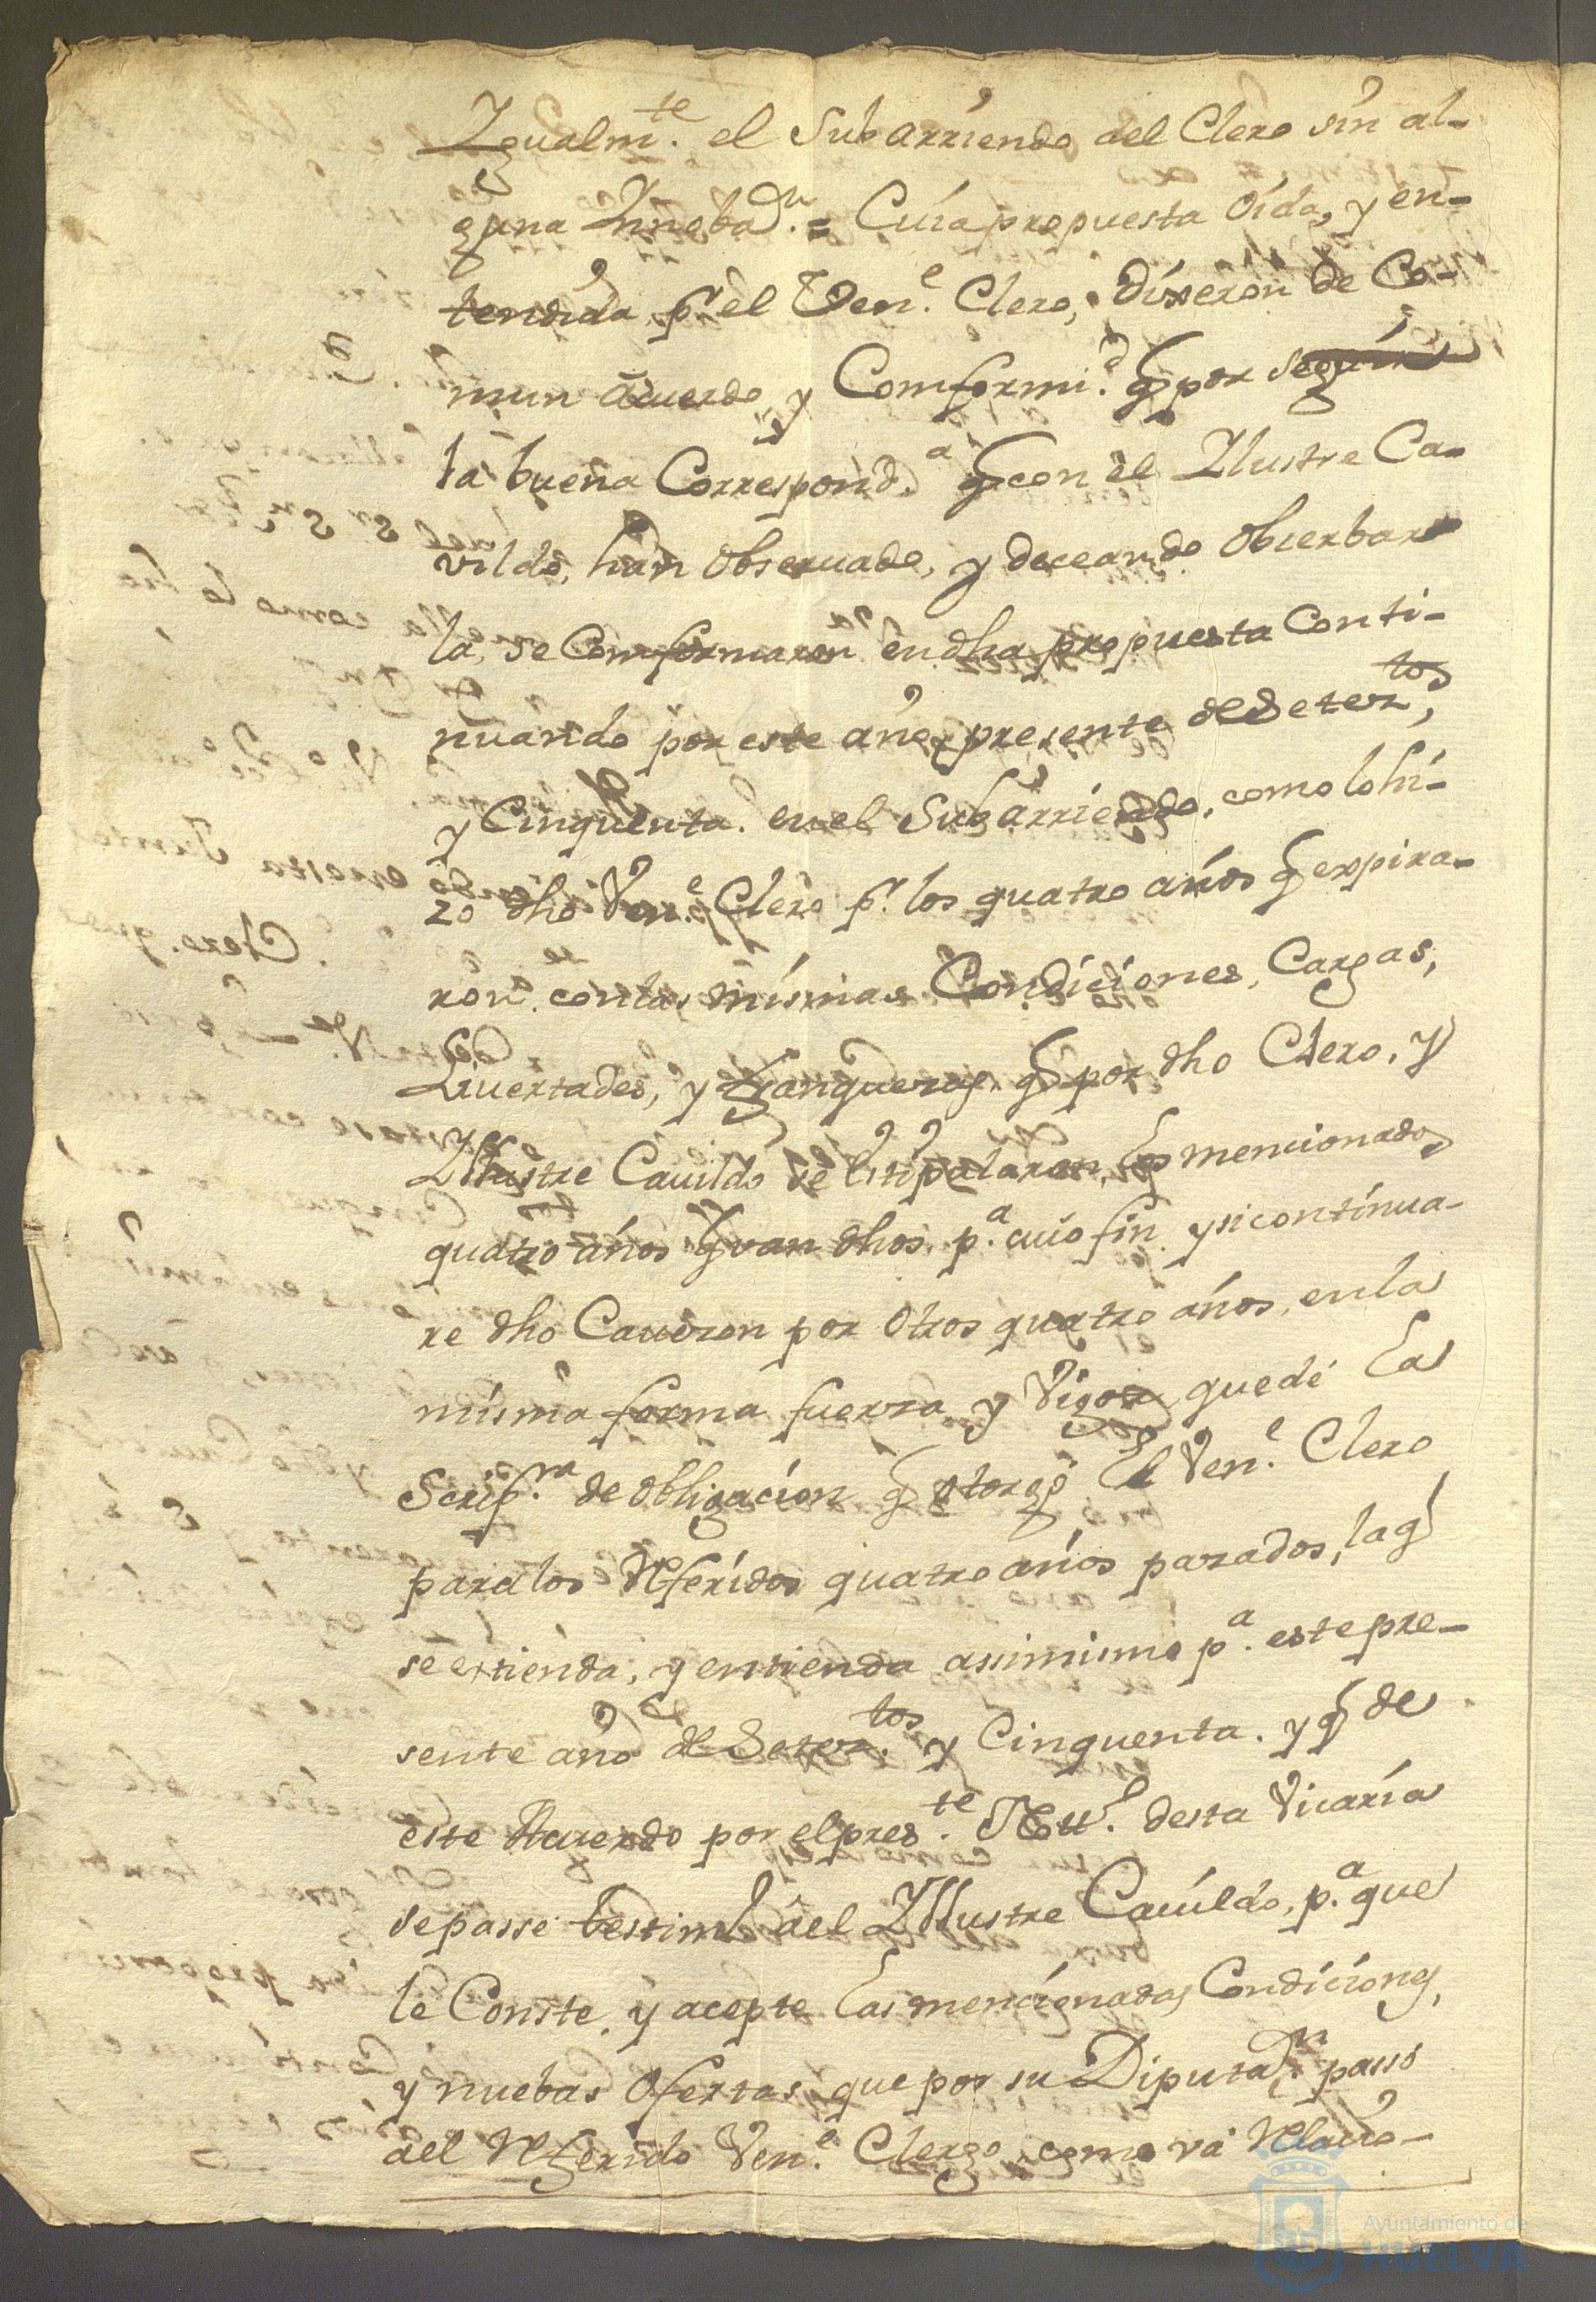 Igualm.te el Subarriendo del Clero sin al-
guna Inneba.n = Cuia propuesta oida, y en-
tendida p.r el Ven.e Clero, dixeron de Co-
mun acuerdo y Comformi.d q por seguir
la buena Correspond.a q con el Ilustre Ca-
vildo, han observado, y deceando obserbar
la, se Comformaron en dha propuesta Conti-
nuando por este año presente de Setez.tos,
y Cinquenta. en el Subarriendo, como lo hi-
zo dho Ven.e Clero p.r los quatro años q expira-
ron. con las mismas Condiciones, Cargas,
Livertades, y franquezas, q por dho Clero, y
Illustre Cavildo se estipularon, los mencionados
quatro años q van dhos. p.a cuio fin y si continua-
re dho Cavezon por otros quatro años, en la
misma forma fuerza y Vigor quede la
Scrip.ra de obligacion q otorgo el Ven.e Clero
para los Referidos quatro años pazados, la q
se extienda, y entienda assimismo p.a este pre-
sente año de Setez.tos y Cinquenta. y q de
este Acuerdo por el pres.te Nott.o desta Vicaria
se passe testim.o ael Illustre Cavildo, p.a que
le Conste, y acepte las mencionadas Condiciones,
y nuebas ofertas, que por su Diputa.n passo
ael Referido Ven.e Clero, como va Relacio-
Ayuntamiento de
HUELVA